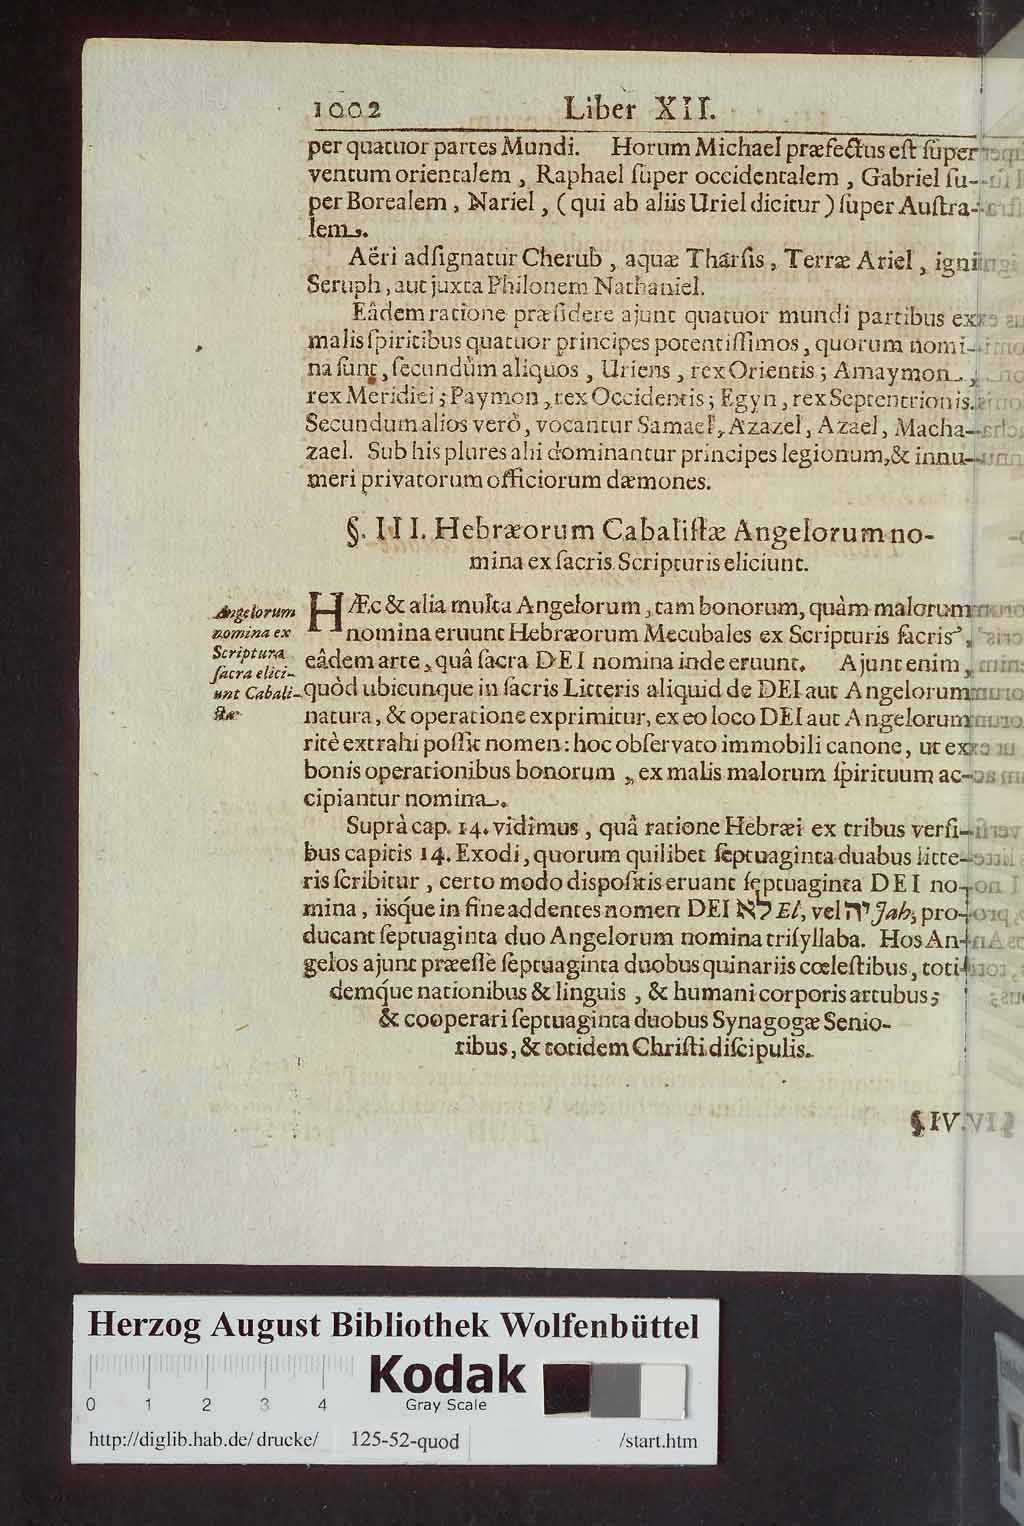 1002 Liber XII.
per quatuor partes Mundi. Horum Michael præfectus est ſuper
ventum orientalem, Raphael ſuper occidentalem, Gabriel ſu-
per Borealem, Nariel, (qui ab aliis Uriel dicitur) ſuper Auſtra-
lem.
Aëri adſignatur Cherub, aquæ Tharſis, Terræ Ariel, igni
Seruph, aut juxta Philonem Nathaniel.
Eâdem ratione præſidere ajunt quatuor mundi partibus ex
malis ſpiritibus quatuor principes potentiſſimos, quorum nomi-
na ſunt, ſecundùm aliquos, Uriens, rex Orientis; Amaymon,
rex Meridiei; Paymon, rex Occidentis; Egyn, rex Septentrionis.
Secundum alios verò, vocantur Samael, Azazel, Azael, Macha-
zael. Sub his plures alii dominantur principes legionum, & innu-
meri privatorum officiorum dæmones.
§. III. Hebræorum Cabaliſtæ Angelorum no-
mina ex ſacris Scripturis eliciunt.
Angelorum
nomina ex
Scriptura
ſacra elici-
unt Cabali-
ſtæ
HÆc & alia multa Angelorum, tam bonorum, quàm malorum
nomina eruunt Hebræorum Mecubales ex Scripturis ſacris,
eâdem arte, quâ ſacra DEI nomina inde eruunt. Ajunt enim,
quòd ubicunque in ſacris Litteris aliquid de DEI aut Angelorum
natura, & operatione exprimitur, ex eo loco DEI aut Angelorum
ritè extrahi poſſit nomen: hoc obſervato immobili canone, ut ex
bonis operationibus bonorum, ex malis malorum ſpirituum ac-
cipiantur nomina.
Suprà cap. 14. vidimus, quâ ratione Hebræi ex tribus verſi-
bus capitis 14. Exodi, quorum quilibet ſeptuaginta duabus litte-
ris ſcribitur, certo modo dispoſitis eruant ſeptuaginta DEI no-
mina, iisque in fine addentes nomen DEI אל El, vel יה Jah, pro-
ducant ſeptuaginta duo Angelorum nomina triſyllaba. Hos An-
gelos ajunt præeſſe ſeptuaginta duobus quinariis cœleſtibus, toti-
demque nationibus & linguis, & humani corporis artubus;
& cooperari ſeptuaginta duobus Synagogæ Senio-
ribus, & totidem Chriſti diſcipulis.
§. IV.
Herzog August Bibliothek Wolfenbüttel
Kodak
Gray Scale
0 1 2 3 4
http://diglib.hab.de/drucke/ 125-52-quod /start.htm